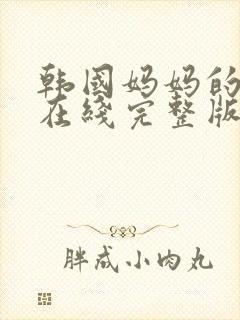 韩国妈妈的
在线完整版
胖成小肉丸